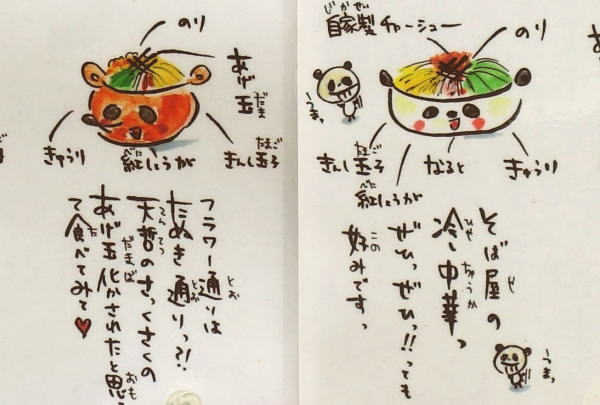 自家製チャーシュー
のり
うまっ
きんし玉子
紅しょうが
なると
きゅうり
そば屋の
冷し中華っ
ぜひっぜひっ!!っても
好みですっ
うまっ
のり
あげ玉
きゅうり
紅しょうが
きんし玉子
フラワー通りは
たぬき通りっ?!
天哲のさっくさくの
あげ玉化かされたと思っ
て食べてみて♥